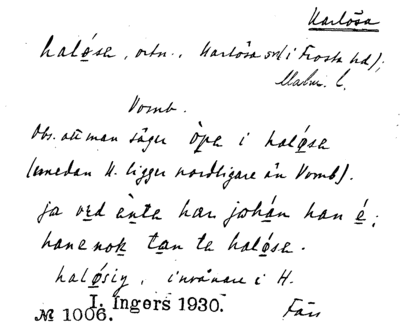 Harlösa
halo̱sa, ortn., Harlösa sn (i Frosta hd);
Malm. l.
Vomb.
Obs. att man säger òpa i halo̱sa
(medan H. ligger nordligare än Vomb).
ja ve̱d ènta har johán han é;
hane nok ta̱n ta halo̱sa.
halo̱sig, invånare i H.
I. Ingers 1930.
№ 1006. Färs